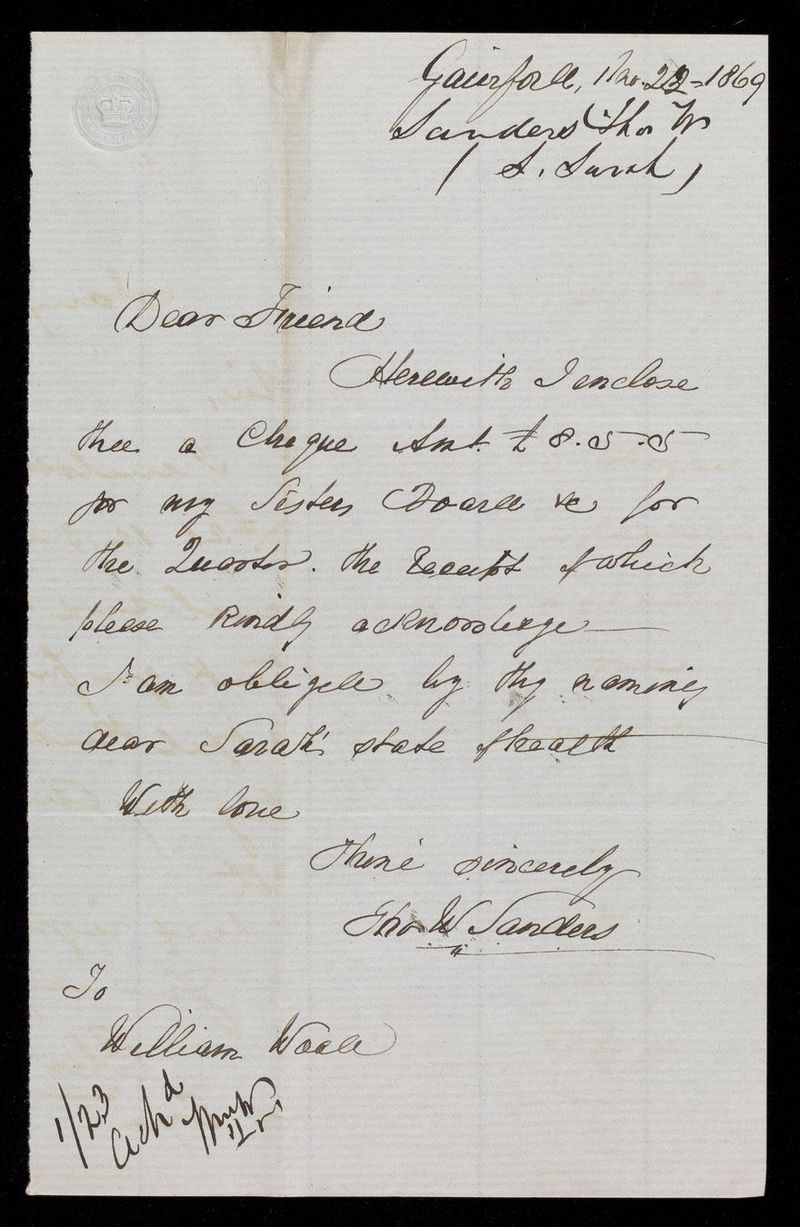 Gainford, 1 mo. 22 = 1869
Sanders Thos W
( S. Sarah )
Dear Friend
Herewith I enclose
thee a Cheque Amt. £8.5.5
for my Sisters Board &c for
the Quarter. the receipt of which
please kindly acknowledge —
I am obliged by thy naming
dear Sarah's state of health
With love
Thine sincerely
Thos W Sanders
To
William Wood
1/23
Ackd